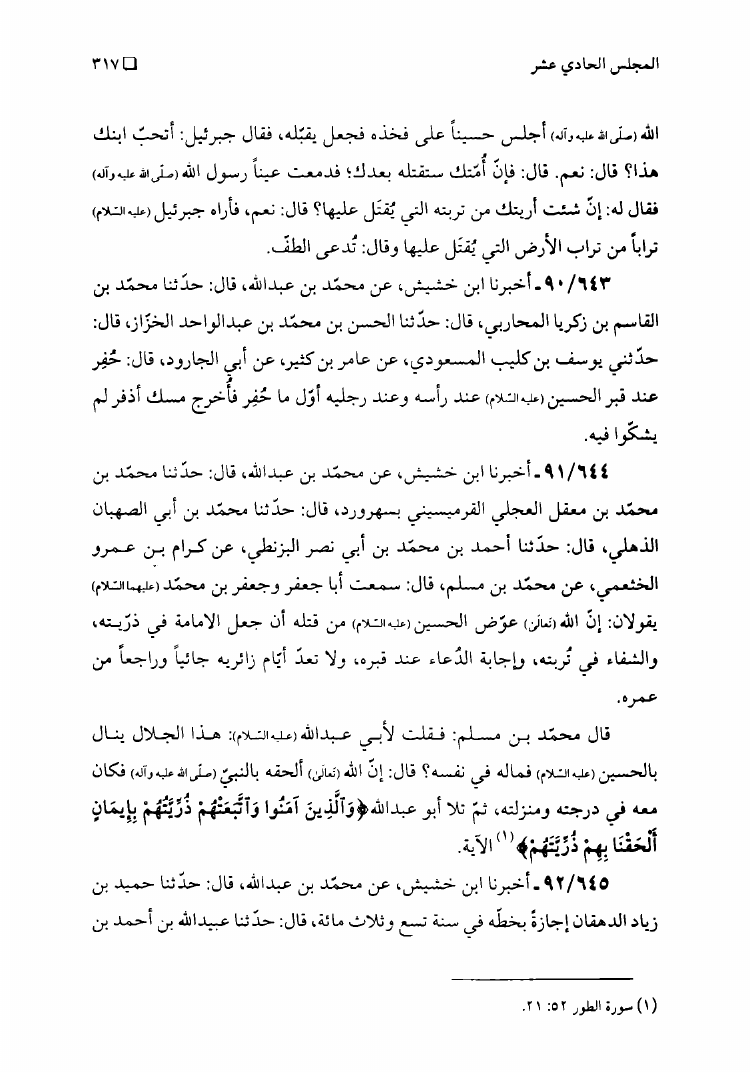 المجلس الحادي عشر ❏ ٣١٧
الله (صلّى الله عليه وآله) أجلس حسيناً على فخذه فجعل يقبّله، فقال جبرئيل: أتحبّ ابنك
هذا؟ قال: نعم. قال: فإنّ أُمّتك ستقتله بعدك؛ فدمعت عيناً رسول الله (صلّى الله عليه وآله)
فقال له: إنّ شئت أريتك من تربته التي يُقتَل عليها؟ قال: نعم، فأراه جبرئيل (عليه السّلام)
تراباً من تراب الأرض التي يُقتَل عليها وقال: تُدعى الطفّ.
٩٠/٦٤٣ ـ أخبرنا ابن خشيش، عن محمّد بن عبدالله، قال: حدّثنا محمّد بن
القاسم بن زكريا المحاربي، قال: حدّثنا الحسن بن محمّد بن عبدالواحد الخزّاز، قال:
حدّثني يوسف بن كليب المسعودي، عن عامر بن كثير، عن أبي الجارود، قال: حُفِر
عند قبر الحسين (عليه السّلام) عند رأسه وعند رجليه أوّل ما حُفِر فأُخرج مسك أذفر لم
يشكّوا فيه.
٩١/٦٤٤ ـ أخبرنا ابن خشيش، عن محمّد بن عبدالله، قال: حدّثنا محمّد بن
محمّد بن معقل العجلي القرميسيني بسهرورد، قال: حدّثنا محمّد بن أبي الصهبان
الذهلي، قال: حدّثنا أحمد بن محمّد بن أبي نصر البزنطي، عن كرام بن عمرو
الخثعمي، عن محمّد بن مسلم، قال: سمعت أبا جعفر وجعفر بن محمّد (عليهما السّلام)
يقولان: إنّ الله (تعالى) عوّض الحسين (عليه السّلام) من قتله أن جعل الامامة في ذرّيته،
والشفاء في تُربته، وإجابة الدُعاء عند قبره، ولا تعدّ أيّام زائريه جائياً وراجعاً من
عمره.
قال محمّد بن مسلم: فقلت لأبي عبدالله (عليه السّلام): هذا الجلال ينال
بالحسين (عليه السّلام) فماله في نفسه؟ قال: إنّ الله (تعالى) ألحقه بالنبيّ (صلّى الله عليه وآله) فكان
معه في درجته ومنزلته، ثمّ تلا أبو عبدالله ﴿وَٱلَّذِينَ آمَنُوا وَٱتَّبَعَتْهُمْ ذُرِّيَّتُهُمْ بِإِيمَانٍ
أَلْحَقْنَا بِهِمْ ذُرِّيَّتَهُمْ﴾ (١) الآية.
٩٢/٦٤٥ ـ أخبرنا ابن خشيش، عن محمّد بن عبدالله، قال: حدّثنا حميد بن
زياد الدهقان إجازةً بخطّه في سنة تسع وثلاث مائة، قال: حدّثنا عبيدالله بن أحمد بن
(١) سورة الطور ٥٢: ٢١.